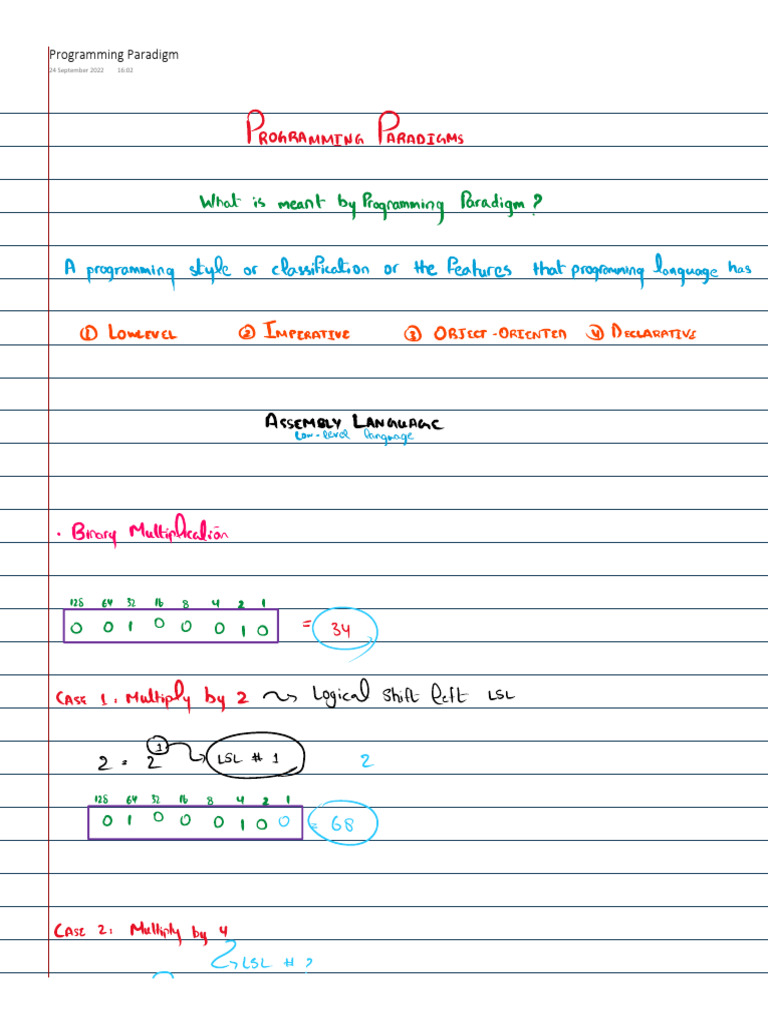 Programming Paradigm
24 September 2022 16:02
PROGRAMMING PARADIGMS
What is meant by Programming Paradigm?
A programming style or classification or the features that programming language has
① LOWLEVEL ② IMPERATIVE ③ OBJECT-ORIENTED ④ DECLARATIVE
ASSEMBLY LANGUAGE
Low-level language
• Binary Multiplication
128 64 32 16 8 4 2 1
0 0 1 0 0 0 1 0 = 34
CASE 1: Multiply by 2 ~> Logical Shift left LSL
2 = 2¹ → LSL # 1 2
128 64 32 16 8 4 2 1
0 1 0 0 0 1 0 0 = 68
CASE 2: Multiply by 4
LSL # ?